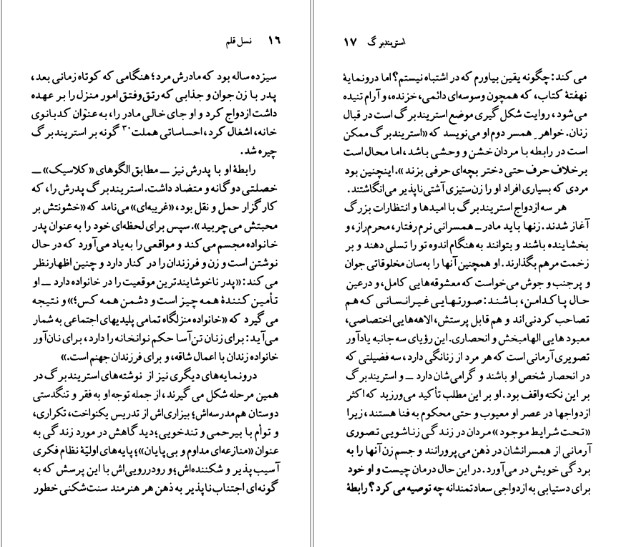 ۱۶ نسل قلم
سیزده ساله بود که مادرش مرد؛ هنگامی که کوتاه زمانی بعد،
پدر با زن جوان و جذابی که رتق‌وفتق امور منزل را بر عهده
داشت ازدواج کرد و او جای خالی مادر را، به‌عنوان کدبانوی
خانه، اشغال کرد، احساساتی هملت۳۰ گونه بر استریندبرگ
چیره شد.
رابطهٔ او با پدرش نیز ــ مطابق الگوهای «کلاسیک» ــ
خصلتی دوگانه و متضاد داشت. استریندبرگ پدرش را، که
کارگزار حمل و نقل بود، «غریبه‌ای» می‌نامد که «خشونتش بر
محبتش می‌چربید». سپس برای لحظه‌ای خود را به‌عنوان پدر
خانواده مجسم می‌کند و مواقعی را به‌یاد می‌آورد که در حال
نوشتن است و زن و فرزندان را در کنار دارد و چنین اظهارنظر
می‌کند: «پدر ناخوشایندترین موقعیت را در خانواده دارد ــ او
تأمین کنندهٔ همه چیز است و دشمن همه کس»؛ و نتیجه
می‌گیرد که «خانواده منزلگاه تمامی پلیدیهای اجتماعی به شمار
می‌آید: برای زنان تن‌آسا حکم نوانخانه را دارد، برای نان‌آور
خانواده زندان با اعمال شاقه، و برای فرزندان جهنم است.»
درونمایه‌های دیگری نیز از نوشته‌های استریندبرگ در
همین مرحله شکل می‌گیرند، از جمله توجه او به فقر و تنگدستی
دوستان هم‌مدرسه‌اش؛ بیزاری‌اش از تدریس یکنواخت، تکراری،
و توأم با بیرحمی و تندخویی؛ دیدگاهش در مورد زندگی به
عنوان «منازعه‌ای مداوم و بی‌پایان»؛ پایه‌های اولیّهٔ نظام فکری
آسیب پذیر و شکننده‌اش؛ و رودررویی‌اش با این پرسش که به
گونه‌ای اجتناب‌ناپذیر به ذهن هر هنرمند سنت‌شکنی خطور
استریندبرگ ۱۷
می‌کند: چگونه یقین بیاورم که در اشتباه نیستم؟ اما درونمایهٔ
نهفتهٔ کتاب، که همچون وسوسه‌ای دائمی، خزنده، و آرام تنیده
می‌شود، روایت شکل گیری موضع استریندبرگ است در قبال
زنان. خواهر همسر دوم او می‌نویسد که «استریندبرگ ممکن
است در رابطه با مردان خشن و وحشی باشد، اما محال است
برخلاف حرف حتی دختر بچه‌ای حرفی بزند». اینچنین بود
مردی که بسیاری افراد او را زن‌ستیزی آشتی‌ناپذیر می‌انگاشتند.
هر سه ازدواج استریندبرگ با امیدها و انتظارات بزرگ
آغاز شدند. زنها باید مادر ــ همسرانی نرم رفتار، محرم‌راز، و
بخشاینده باشند و بتوانند به هنگام اندوه تو را تسلی دهند و بر
زخمت مرهم بگذارند. او همچنین آنها را به‌سان مخلوقاتی جوان
و پرجنب و جوش می‌خواست که معشوقه‌هایی کامل، و درعین
حال پاکدامن، باشند: صورتهایی غیرانسانی که هم
تصاحب کردنی‌اند و هم قابل پرستش، الاهه‌هایی اختصاصی،
معبودهایی الهامبخش و انحصاری. این رؤیای سه جانبه یادآور
تصویری آرمانی است که هر مرد از زنانگی دارد، سه فضیلتی که
در انحصار شخص او باشند و گرامی‌شان دارد ــ و استریندبرگ
بر این نکته واقف بود. او بر این مطلب تأکید می‌ورزید که اکثر
ازدواجها در عصر او معیوب و حتی محکوم به فنا هستند، زیرا
«تحت شرایط موجود» مردان در زندگی زناشویی تصوری
آرمانی از همسرانشان در ذهن می‌پرورانند و جسم زن آنها را به
بردگی خویش در می‌آورد. در این حال درمان چیست و او خود
برای دستیابی به ازدواجی سعادتمندانه چه توصیه می‌کرد؟ رابطهٔ